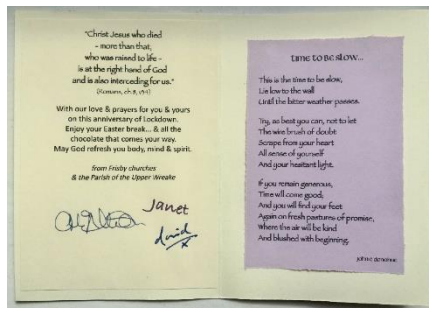 "Christ Jesus who died
- more than that,
who was raised to life -
is at the right hand of God
and is also interceding for us."
(Romans, ch 8, v34)
With our love & prayers for you & yours
on this anniversary of Lockdown.
Enjoy your Easter break... & all the
chocolate that comes your way.
May God refresh you body, mind & spirit.
from Frisby churches
& the Parish of the Upper Wreake
Janet
david
x
time to be slow...
This is the time to be slow,
Lie low to the wall
Until the bitter weather passes.
Try, as best you can, not to let
The wire brush of doubt
Scrape from your heart
All sense of yourself
And your hesitant light.
If you remain generous,
Time will come good;
And you will find your feet
Again on fresh pastures of promise,
Where the air will be kind
And blushed with beginning.
john o' donohue